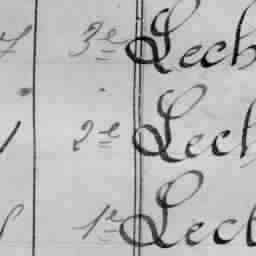 7 3e Lech
1 2e Lech
1e Lecl